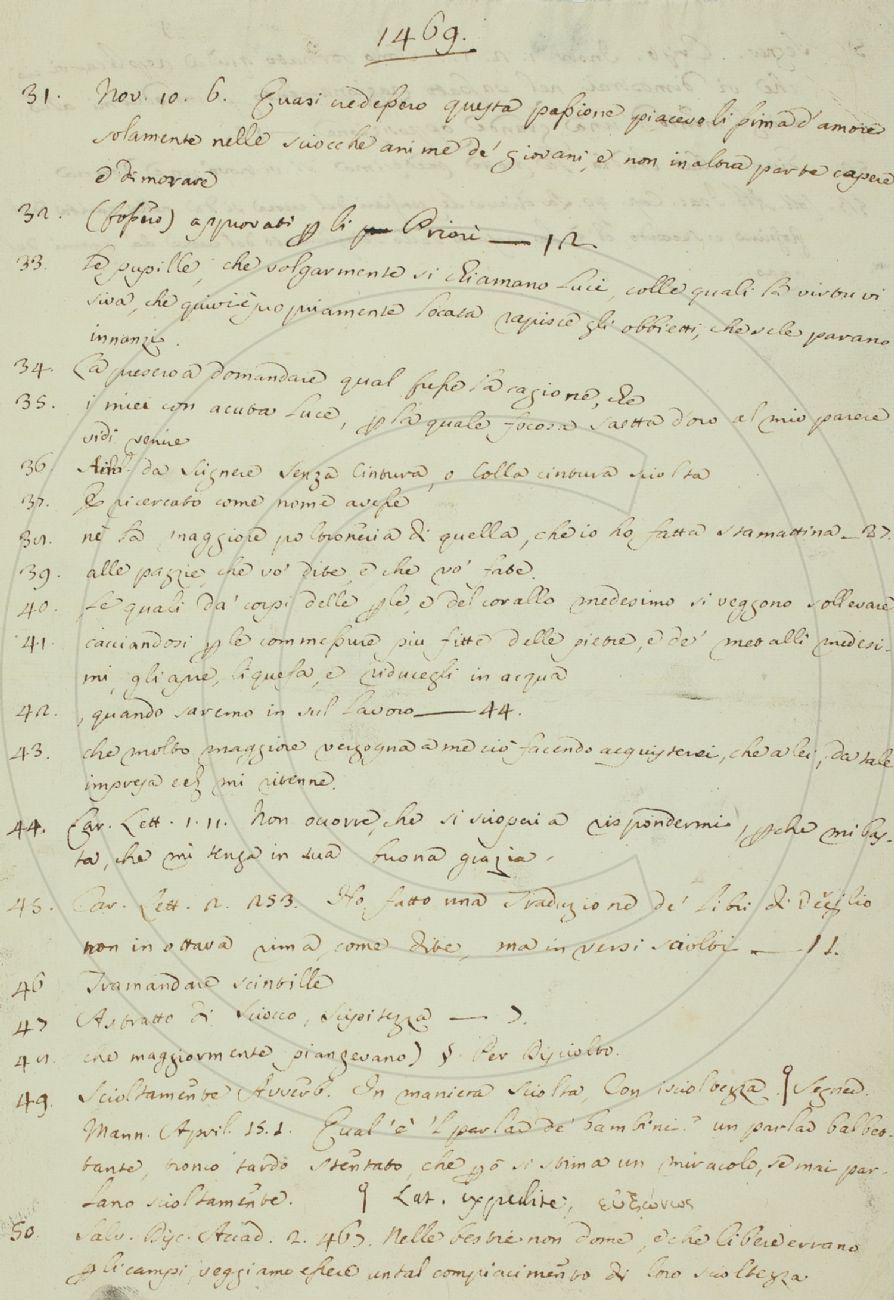 1469.
31. Nov. 10. 6. Quasi credessero questa passione piacevolissima d'amore
solamente nelle sciocche anime de' giovani, e non in altra parte capere
e dimorare
32. (fossero) approvati p li Priori — 12.
33. Le pupille, che volgarmente si chiamano Luci, colle quali la virtù vi
siva, che quivi è propriamente locata rapisce gli obbietti, che se le parano
innanzi.
34. La presero a domandare qual fusse la cagione, che
35. i miei con acuta Luce, p la quale focosa saetta d'oro al mio parere
vidi venire
36 da Scignere Senza Cintura, o Colla cintura sciolta
37. E ricercato come nome avesse
38. nè la maggiore poltroneria di quella, che io ho fatta stamattina — 37.
39. alle pazzie, che vo' dite, e che vo' fate.
40. Le quali da' corpi delle ple, e del corallo medesimo si veggono sollevare
41. cacciandosi p le commessure più fitte delle pietre, e de' metalli medesi-
mi, gli apre, liquefa, e riducegli in acqua
42. , quando saremo in sul lavoro — 44.
43. che molto maggiore vergogna a me ciò facendo acquisterei, che a lei, da tale
impresa mi ritenne.
44. Car. Lett. 1. 11. Non occorre, che si scioperi a rispondermi, pche mi bas-
ta, che mi tenga in sua buona grazia.
45. Car. Lett. 2. 253. Ho fatto una Traduzione de' Libri di Vergilio
non in ottava rima, come dite, ma in versi sciolti — 11.
46 Tramandare scintille
47 Astratto di Sciocco, Scipitezza — 7.
48. che maggiormente piangevano) §. Per Disciolto.
49. Scioltamente Avverb. In maniera sciolta, Con iscioltezza. Segner.
Mann. April. 15. 1. Qual'è 'l parlar de' bambini? un parlar balbet-
tante, tronco tardo stentato, che po si stima un miracolo, se mai par-
lano scioltamente. Lat. expedite, εὐζώνως
50. Salv. Disc. Accad. 2. 467. Nelle bestie non dome, e che libere errano
p li campi, veggiamo essere un tal compiacimento di loro scioltezza